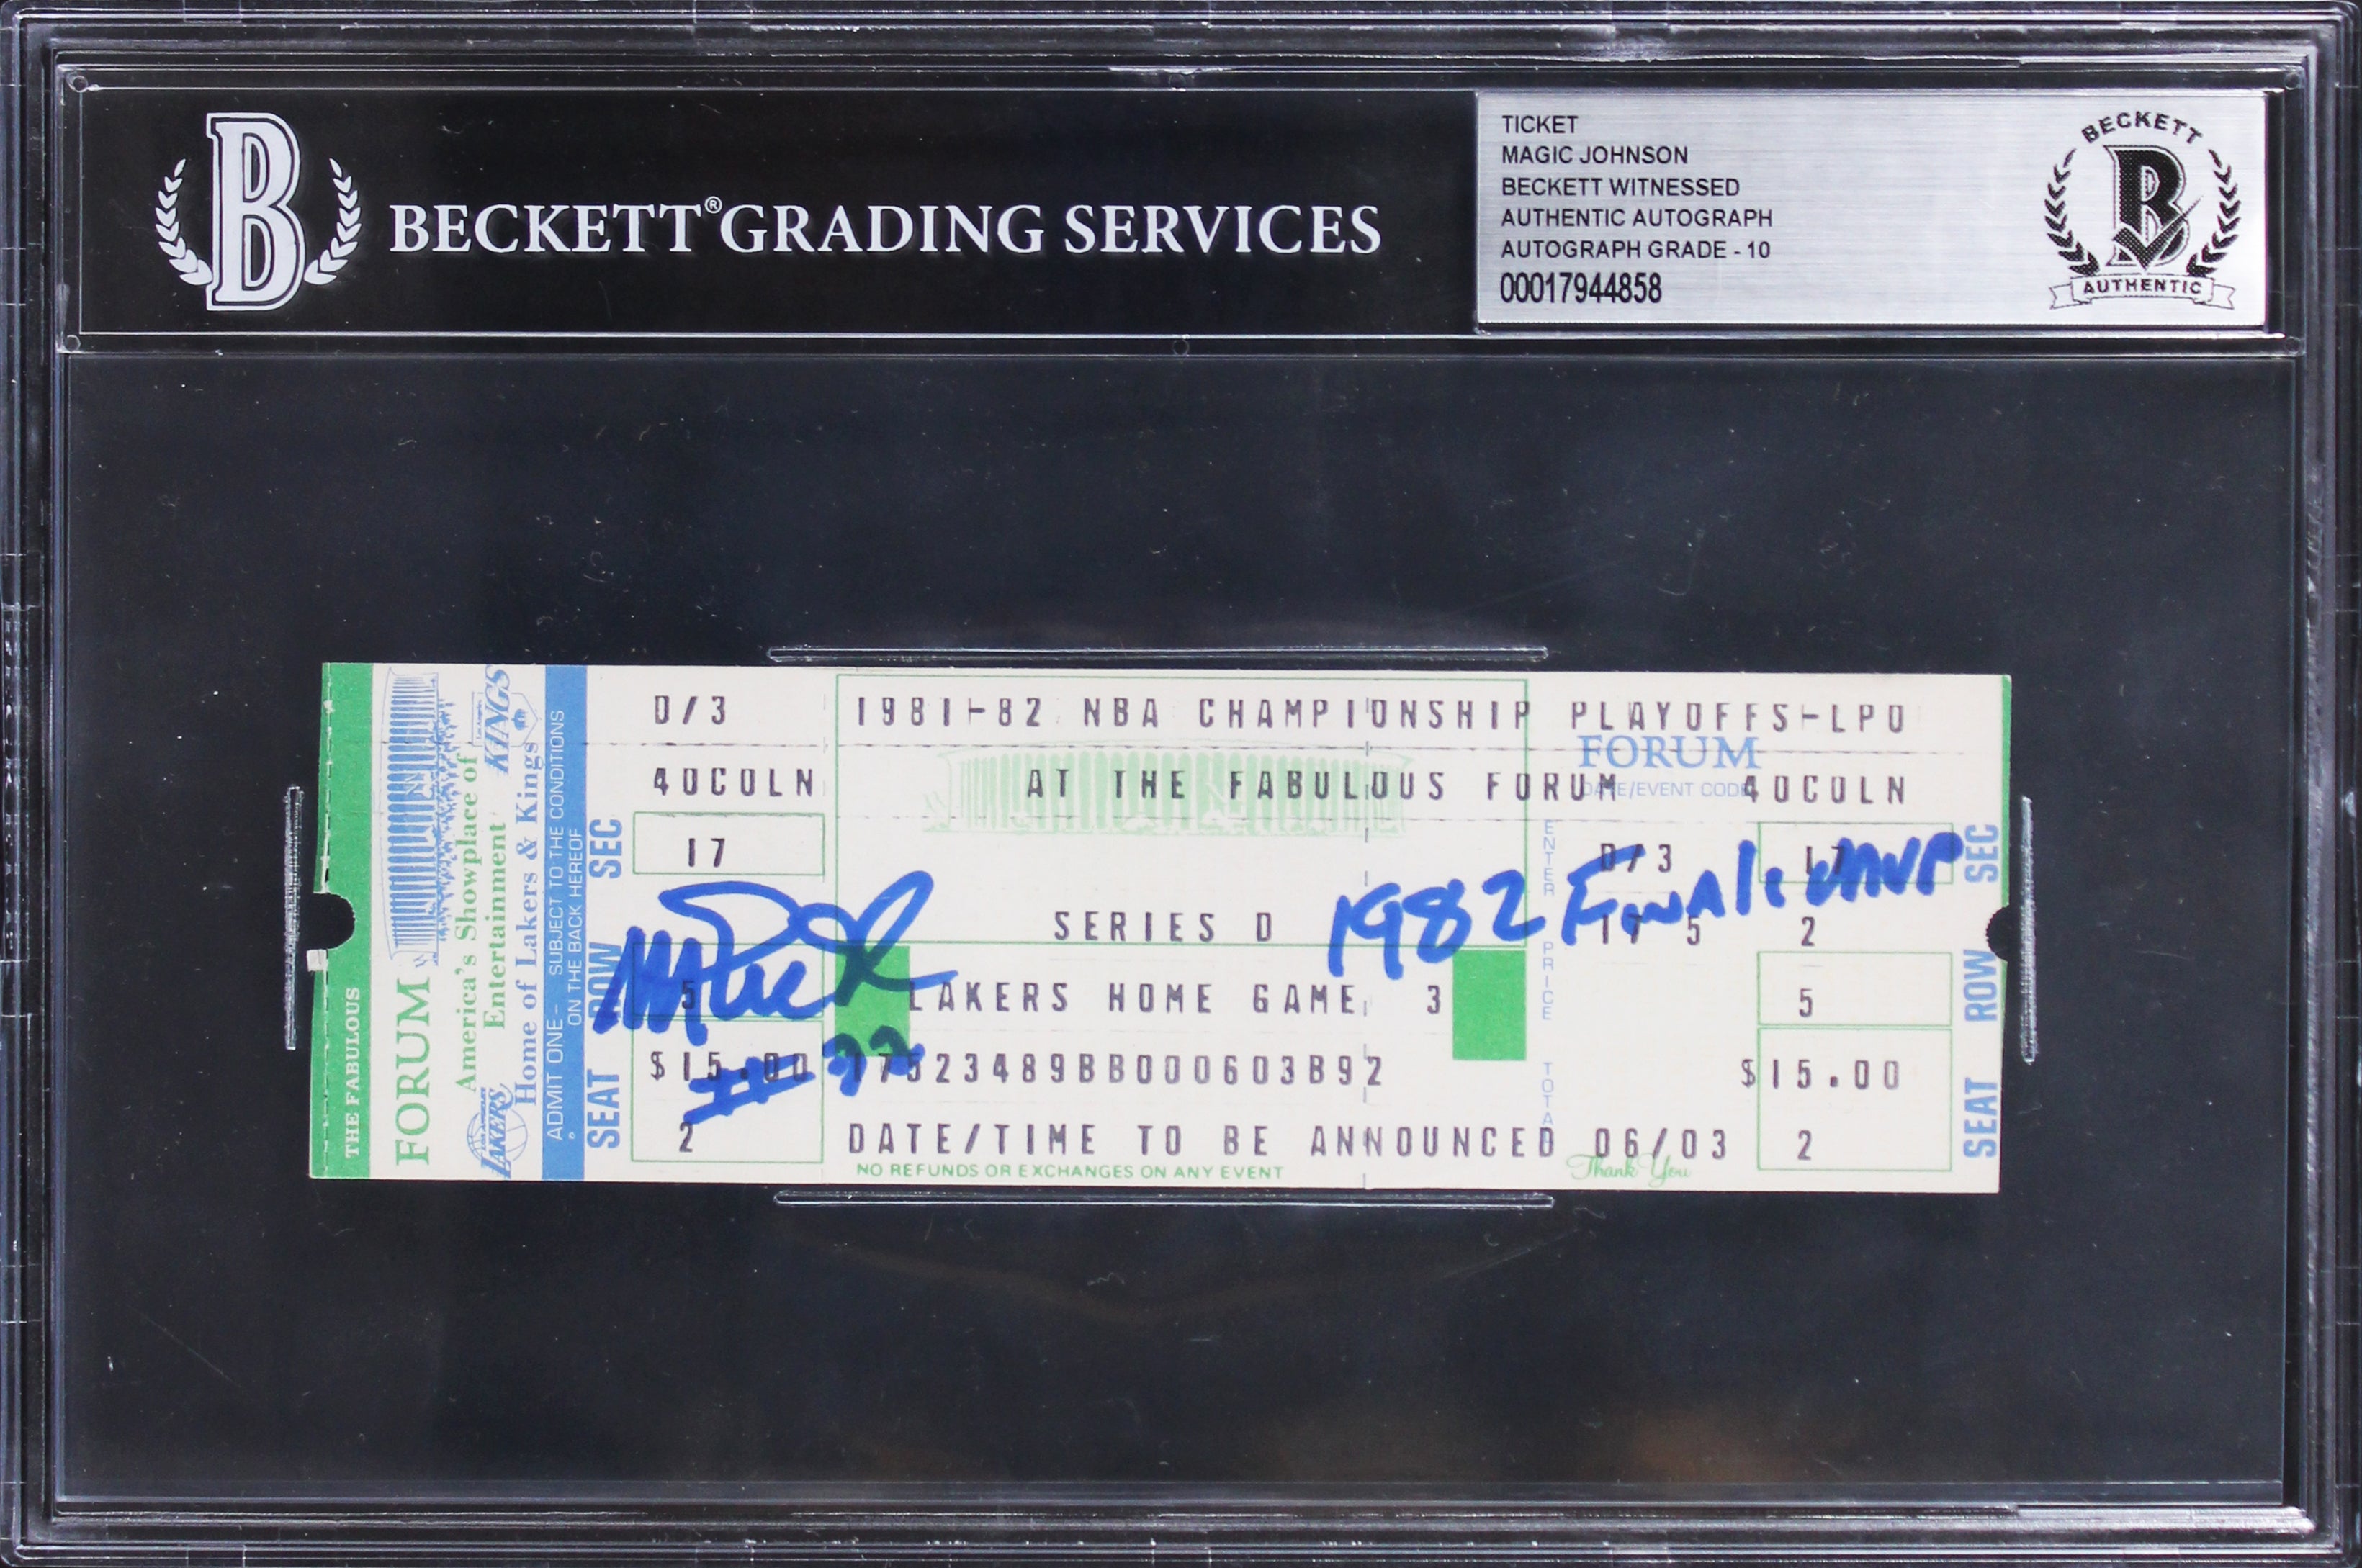 BECKETT® GRADING SERVICES
TICKET
MAGIC JOHNSON
BECKETT WITNESSED
AUTHENTIC AUTOGRAPH
AUTOGRAPH GRADE - 10
00017944858
BECKETT
B
AUTHENTIC
THE FABULOUS
FORUM
America's Showplace of
Entertainment
Home of Lakers & Kings
KINGS
LAKERS
ADMIT ONE - SUBJECT TO THE CONDITIONS
ON THE BACK HEREOF
SEC
ROW
SEAT
D/3
40COLN
17
5
$15.00
2
1981-82 NBA CHAMPIONSHIP PLAYOFFS-LPO
AT THE FABULOUS FORUM 40COLN
FORUM
DATE/EVENT CODE
SERIES D
LAKERS HOME GAME 3
17523489BB000603B92
DATE/TIME TO BE ANNOUNCED 06/03
NO REFUNDS OR EXCHANGES ON ANY EVENT
ENTER PRICE TOTAL
D/3 17
17 5 2
5
$15.00
2
Thank You
SEC
ROW
SEAT
1982 Finals MVP